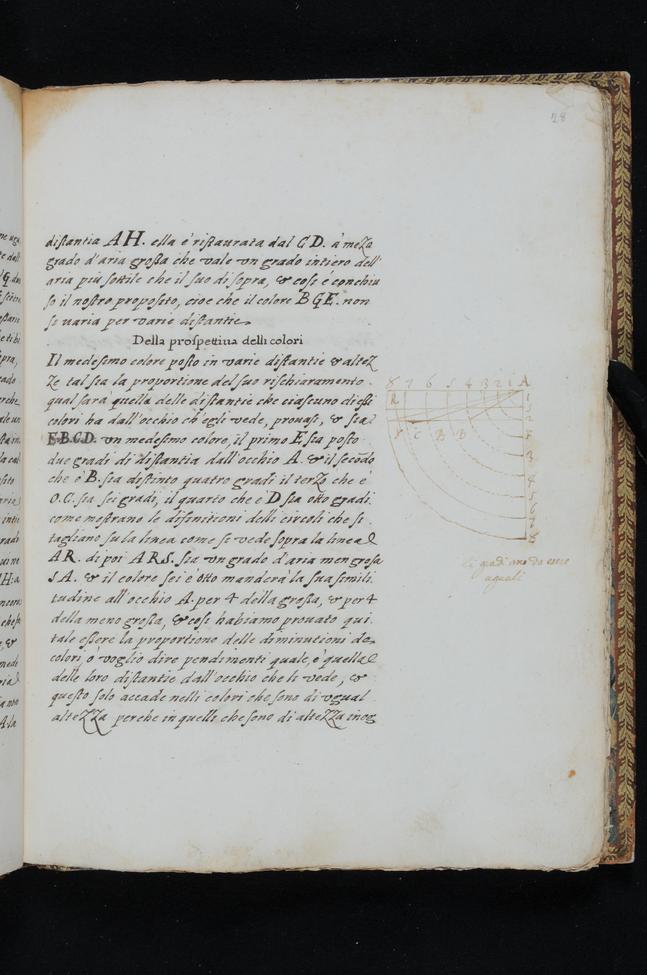 28
distantia AH. ella è ristaurata dal CD. à meza
grado d'aria grossa che vale vn grado intiero dell'
aria più sottile che il suo di sopra, & cosi è conchiu
so il nostro proposito, cioe che il colore BGE. non
si uaria per varie distantie
Della prospettiua delli colori
Il medesimo colore posto in varie distantie & altez
ze tal sia la proportione del suo rischiaramento
qual sarà quella delle distantie che ciascuno di essi
colori ha dall'occhio ch'egli vede, prouasi, & sia
E·B·C·D. vn medesimo colore, il primo E sia posto
due gradi di distantia dall'occhio A. & il secōdo
che è B. sia distinto quatro gradi il terzo che è
O.C. sia sei gradi, il quarto che è D sia otto gradi
come mostrano le difinitioni delli circoli che si
tagliano su la linea come si vede sopra la linea
AR. di poi ARS. sia vn grado d'aria men grosa
SA. & il colore sei è otto manderà la sua simili
tudine all'occhio A. per 4 della grossa, & per 4
della meno grossa, & cosi habiamo prouato qui
tale essere la proportione delle diminutioni de
colori, ò voglio dire pendimenti quale, è quella
delle loro distantie dall'occhio che li vede, &
questo solo accade nelli colori che sono di vgual
altezza perche in quelli che sono di altezza ineg
8 7 6 5 4 3 2 1 A
R
C B B
1
2
3
4
5
6
7
8
li gradi ano da esere
uguali